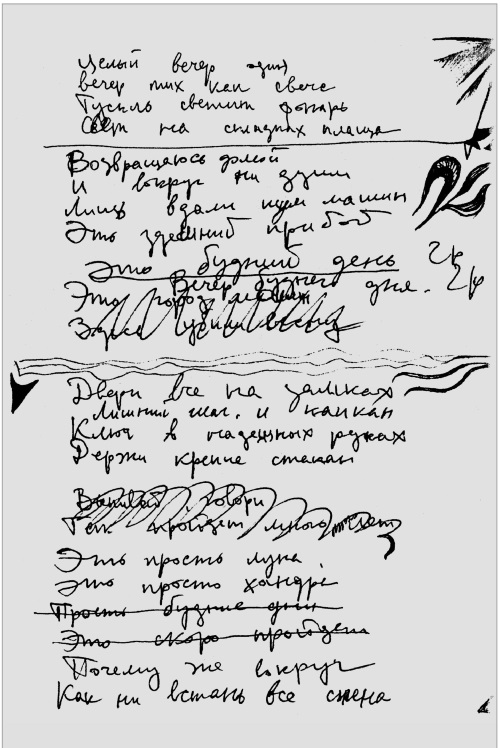 Целый вечер один
вечер тих как свеча
Тускло светит фонарь
Свет на складках плаща
Возвращаюсь домой
И вокруг ни души
Лишь вдали шум машин
Это здешний прибой
Это будний день 2р
Вечер буднего дня. 2р
Это город
Здесь
Двери все на замках
Лишний шаг. и капкан
Ключ в надежных руках
Держи крепче стакан
Выпивай, говори
Так пройдет много лет
Это просто луна
Это просто хандра
Просто будние дни
Это скоро пройдет
Почему же вокруг
Как ни встань все стена